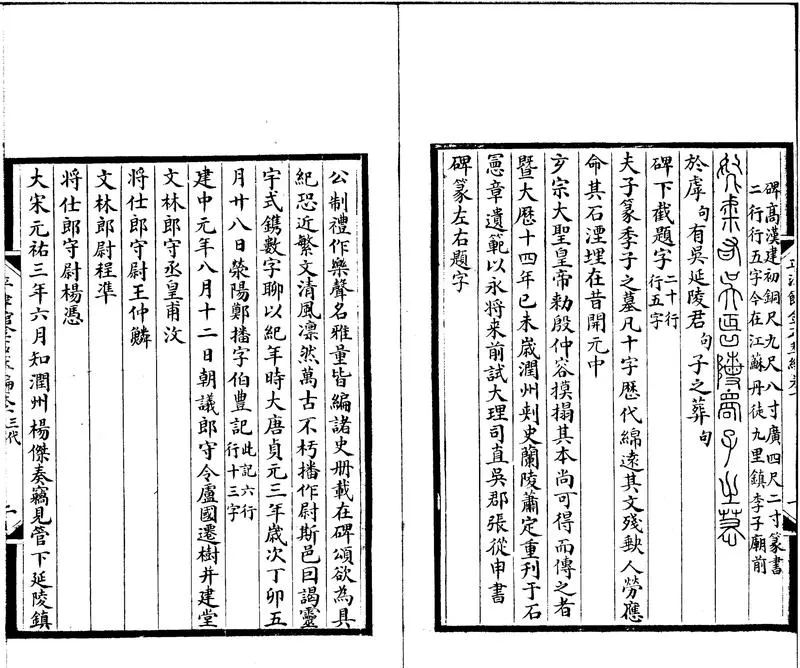 碑高漢建初銅尺九尺八寸廣四尺二寸篆書
二行行五字今在江蘇丹徒九里鎮季子廟前
於虖句有吳延陵君句子之葬句
碑下截題字二十行
行五字
夫子篆季子之墓凡十字歷代綿遠其文殘缺人勞應
命其石湮埋在昔開元中
玄宗大聖皇帝勅殷仲容摸搨其本尚可得而傳之者
暨大歷十四年已未嵗潤州刾史蘭陵蕭定重刊于石
憲章遺範以永將来前試大理司直吳郡張從申書
碑篆左右題字
公制禮作樂聲名雅量皆編諸史册載在碑頌欲為具
紀恐近繁文清風凛然萬古不朽播作尉斯邑曰謁靈
宇式鐫數字聊以紀年時大唐貞元三年嵗次丁卯五
月廿八日滎陽鄭播字伯豊記此記六行
行十三字
建中元年八月十二日朝議郎守令盧國遷樹并建堂
文林郎守丞皇甫汶
将仕郎守尉王仲鱗
文林郎尉程準
將仕郎守尉楊憑
大宋元祐三年六月知潤州楊傑奏竊見管下延陵鎮